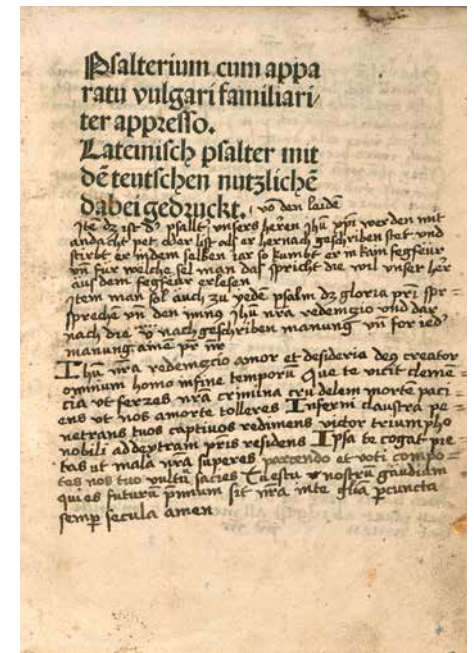 Psalterium cum appa
ratu vulgari familiari/
ter appresso.
Lateinisch psalter mit
dē teutschen nutzlichē
dabei gedruckt. vō den leidē
Itē dz ist dʼ psallt unsers herēn Jhū xp̄i werden mit
andacht pet oder list als er hernach geschriben stet vnd
stirbt er indem selben iar so kumbt er in kain fegfeur
vn̄ für welche sel man daſ spricht die wil vnser her
aus dem fegfeur erlesen
Item man sol auch zu yedē psalm dz gloria pr̄i spr=
sprechē vn̄ den imnꝰ Jhū nr̄a redemczio vnd dar
nach die v̄ nachgeschriben manung vn̄ for iedʼ
manung. amē pr̄ nr̄
Ihū nr̄a redemczio amor et desideriū deꝰ creator
omnium homo infine temporū Que te vicit clemē=
cia vt ferres nr̄a crimina crudelem mortē paci=
ens vt nos amorte tolleres Inferni claustra pe=
netrans tuos captiuos redimens victor triumpho
nobili ad dextram pris residens Ipsa te cogat pie=
tas ut mala nr̄a superes parcendo et voti compo=
tes nos tuo vultū sacies Tu estu nostrū gaudium
qui es futurꝰ p̄mium sit nr̄a inte gl̄ia p̄ cuncta
semp̄ secula amen